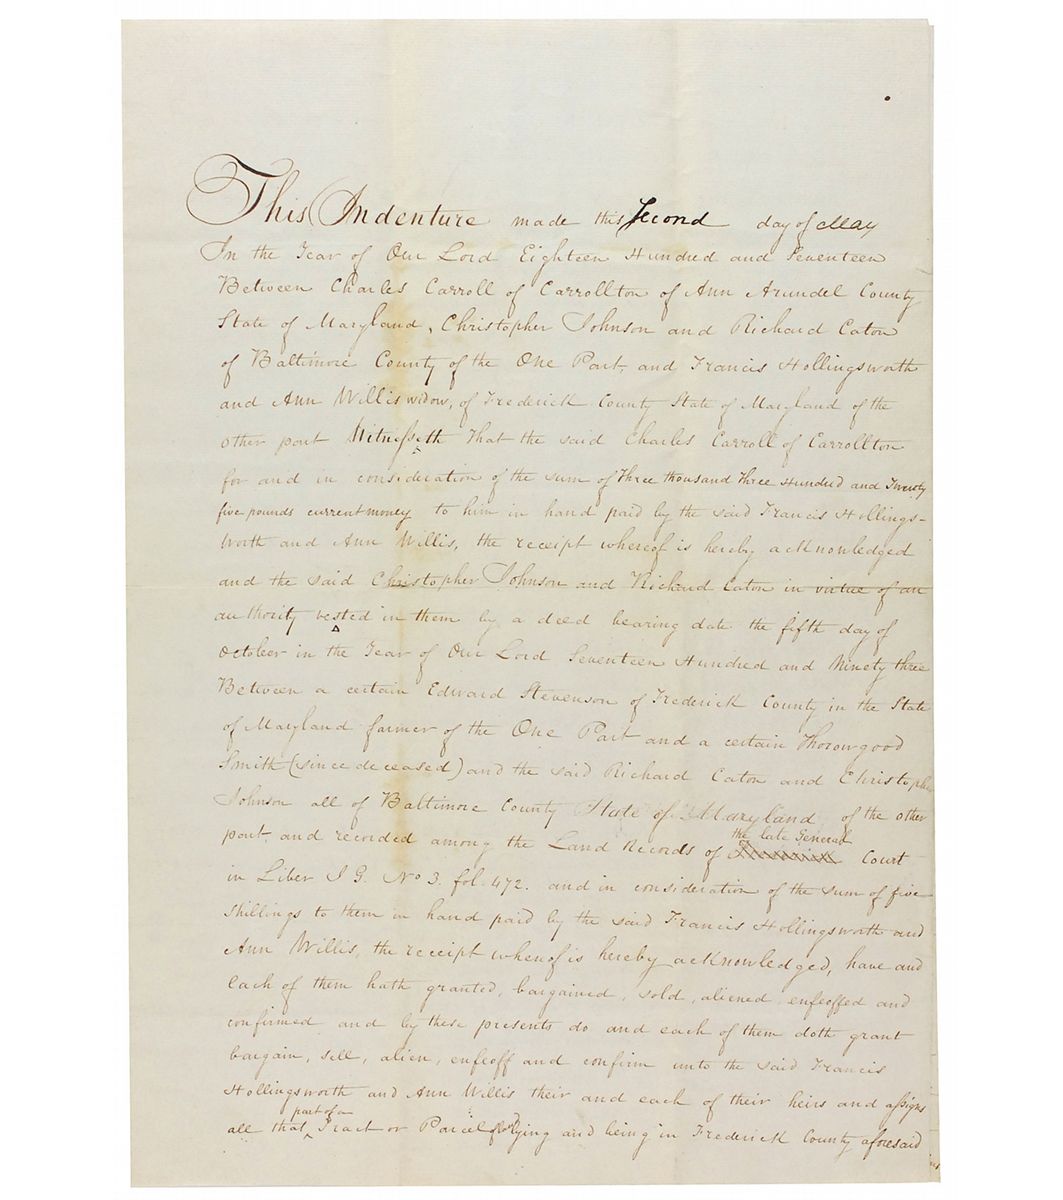 This Indenture made this Second day of May
In the Year of Our Lord Eighteen Hundred and Seventeen
Between Charles Carroll of Carrollton of Ann Arundel County
State of Maryland, Christopher Johnson and Richard Caton
of Baltimore County of the One Part, and Francis Hollingsworth
and Ann Willis widow, of Frederick County State of Maryland of the
other part Witnesseth That the said Charles Carroll of Carrollton
for and in consideration of the sum of Three thousand Three Hundred and Twenty
five pounds current money to him in hand paid by the said Francis Hollings-
worth and Ann Willis, the receipt whereof is hereby acknowledged
and the said Christopher Johnson and Richard Caton in virtue of an
authority vested in them by a deed bearing date the fifth day of
October in the Year of Our Lord Seventeen Hundred and Ninety three
Between a certain Edward Stevenson of Frederick County in the State
of Maryland farmer of the One Part and a certain Thorowgood
Smith (since deceased) and the said Richard Caton and Christopher
Johnson all of Baltimore County State of Maryland of the other
part and recorded among the Land Records of the late General Court
in Liber I G. No 3. fol. 472. and in consideration of the sum of five
shillings to them in hand paid by the said Francis Hollingsworth and
Ann Willis, the receipt whereof is hereby acknowledged, have and
each of them hath granted, bargained, sold, aliened, enfeoffed and
confirmed and by these presents do and each of them doth grant
bargain, sell, alien, enfeoff and confirm unto the said Francis
Hollingsworth and Ann Willis their and each of their heirs and assigns
all that part of a Tract or Parcel lying and being in Frederick County aforesaid